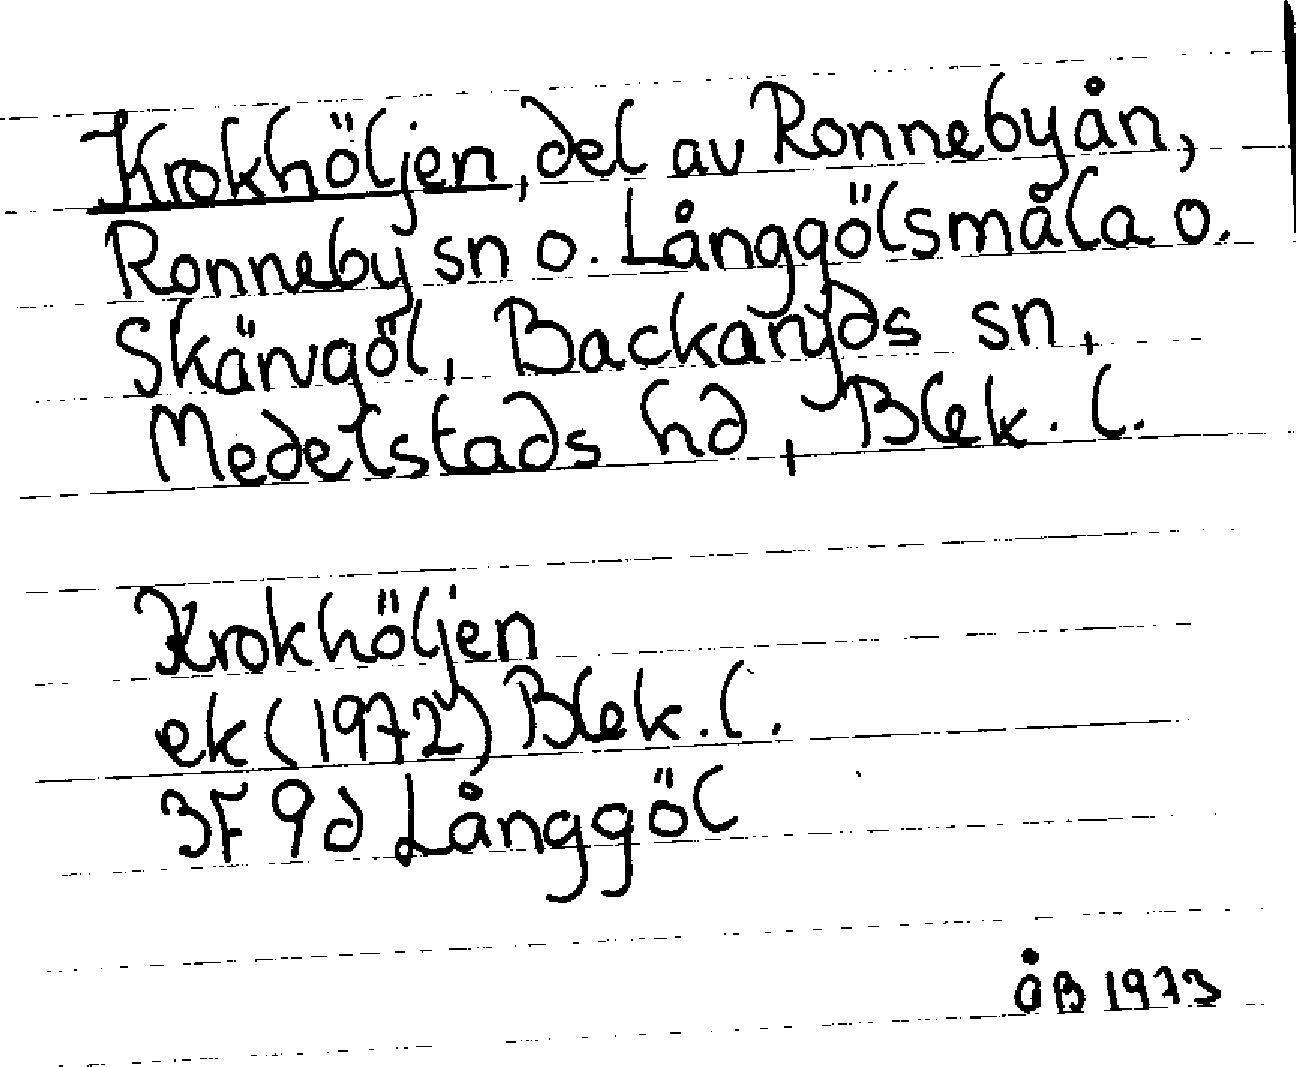 Krokhöljen, del av Ronnebyån,
Ronneby sn o. Långgölsmåla o.
Skärvgöl, Backaryds sn,
Medelstads hd, Blek. l.
Krokhöljen
ek (1972) Blek. l.
3F 9d Långgöl
ÅB 1973